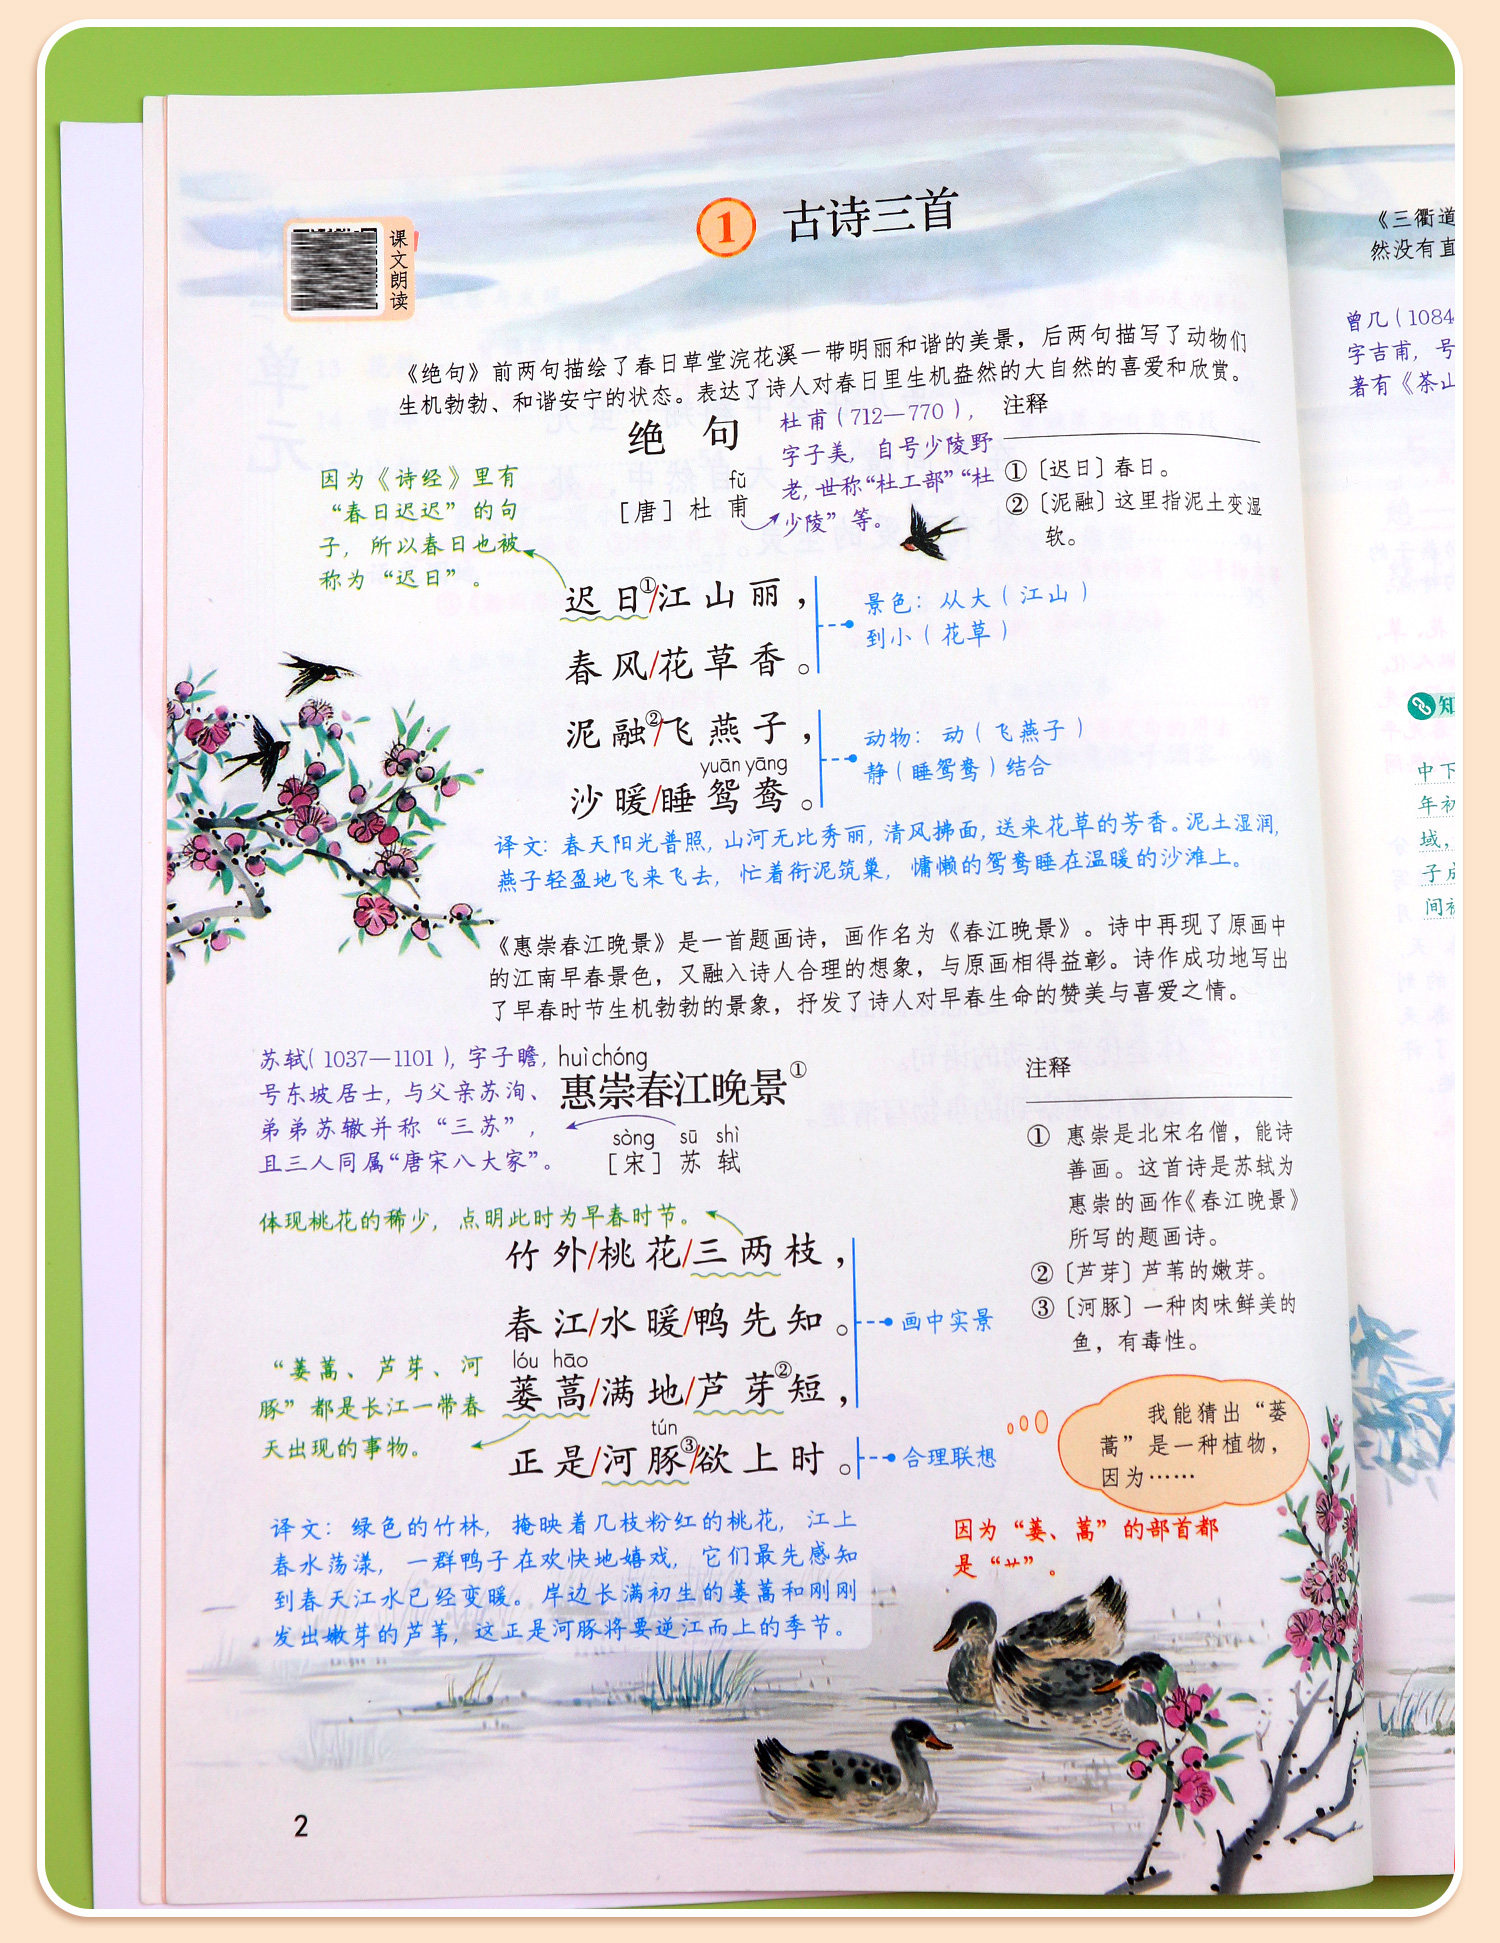 课文朗读
1 古诗三首
《绝句》前两句描绘了春日草堂浣花溪一带明丽和谐的美景，后两句描写了动物们
生机勃勃、和谐安宁的状态。表达了诗人对春日里生机盎然的大自然的喜爱和欣赏。
绝句
fǔ
［唐］杜甫
杜甫（712—770），
字子美，自号少陵野
老，世称“杜工部”“杜
少陵”等。
注释
①〔迟日〕春日。
②〔泥融〕这里指泥土变湿
软。
因为《诗经》里有
“春日迟迟”的句
子，所以春日也被
称为“迟日”。
迟日①/江山丽，
春风/花草香。
景色：从大（江山）
到小（花草）
泥融②/飞燕子，
yuān yāng
沙暖/睡鸳鸯。
动物：动（飞燕子）
静（睡鸳鸯）结合
译文：春天阳光普照，山河无比秀丽，清风拂面，送来花草的芳香。泥土湿润，
燕子轻盈地飞来飞去，忙着衔泥筑巢，慵懒的鸳鸯睡在温暖的沙滩上。
《惠崇春江晚景》是一首题画诗，画作名为《春江晚景》。诗中再现了原画中
的江南早春景色，又融入诗人合理的想象，与原画相得益彰。诗作成功地写出
了早春时节生机勃勃的景象，抒发了诗人对早春生命的赞美与喜爱之情。
苏轼（1037—1101），字子瞻，
号东坡居士，与父亲苏洵、
弟弟苏辙并称“三苏”，
且三人同属“唐宋八大家”。
huì chóng
惠崇春江晚景①
sòng sū shì
［宋］苏轼
注释
① 惠崇是北宋名僧，能诗
善画。这首诗是苏轼为
惠崇的画作《春江晚景》
所写的题画诗。
②〔芦芽〕芦苇的嫩芽。
③〔河豚〕一种肉味鲜美的
鱼，有毒性。
体现桃花的稀少，点明此时为早春时节。
竹外/桃花/三两枝，
春江/水暖/鸭先知。
lóu hāo
蒌蒿/满地/芦芽②短，
tún
正是/河豚③/欲上时。
画中实景
合理联想
“蒌蒿、芦芽、河
豚”都是长江一带春
天出现的事物。
我能猜出“蒌
蒿”是一种植物，
因为……
因为“蒌、蒿”的部首都
是“艹”。
译文：绿色的竹林，掩映着几枝粉红的桃花，江上
春水荡漾，一群鸭子在欢快地嬉戏，它们最先感知
到春天江水已经变暖。岸边长满初生的蒌蒿和刚刚
发出嫩芽的芦苇，这正是河豚将要逆江而上的季节。
2
《三衢道
然没有直
曾几（1084
字吉甫，号
著有《茶山
知
中下
年初
域，
子成
间初